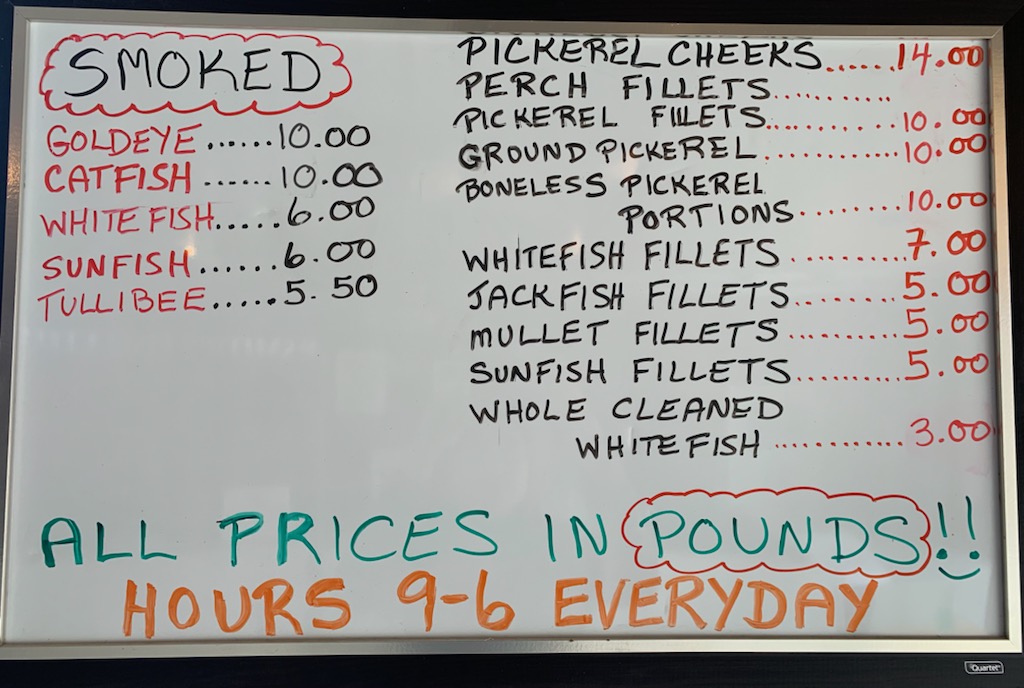 SMOKED
GOLDEYE......10.00
CATFISH.......10.00
WHITE FISH.....6.00
SUNFISH......6.00
TULLIBEE.....5.50
PICKEREL CHEEKS......14.00
PERCH FILLETS...........
PICKEREL FILLETS...........10.00
GROUND PICKEREL............10.00
BONELESS PICKEREL
PORTIONS........10.00
WHITEFISH FILLETS..........7.00
JACKFISH FILLETS.........5.00
MULLET FILLETS..........5.00
SUNFISH FILLETS..........5.00
WHOLE CLEANED
WHITEFISH............3.00
ALL PRICES IN POUNDS!!
HOURS 9-6 EVERYDAY
Quartet